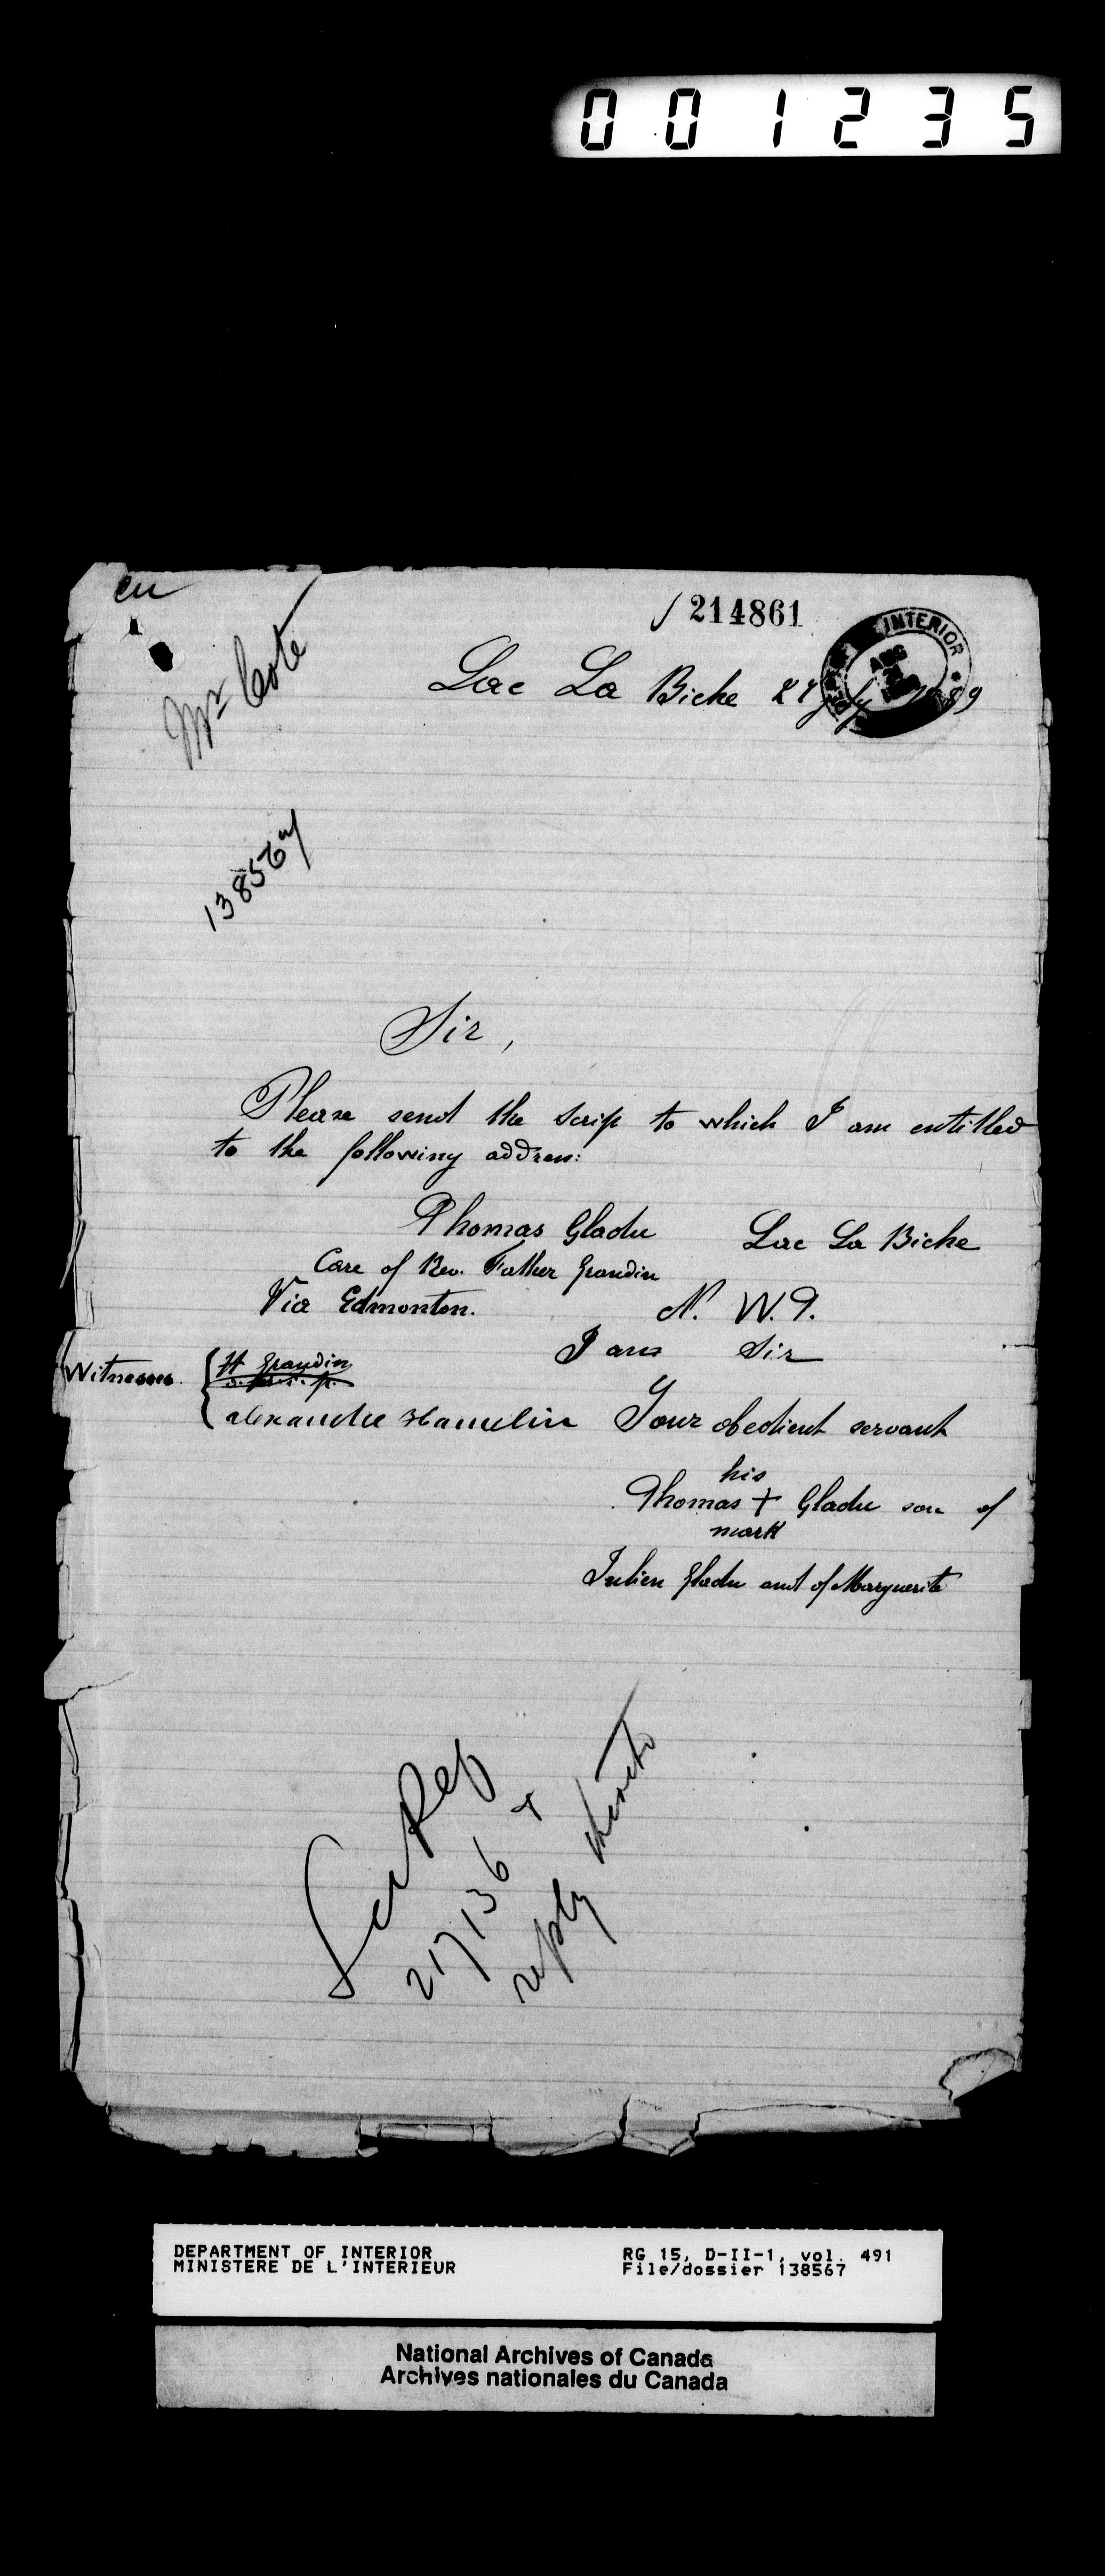 001235
en
214861
INTERIOR
AUG
Mr Cote
Lac La Biche 27 July 1889
138567
Sir,
Please send the scrip to which I am entitled
to the following address:
Thomas Gladu Lac La Biche
Care of Rev. Father Grandin
Via Edmonton. N. W. T.
I am Sir
Witnesses. H Grandin
o.m.i. p.
alexandre Hamelin Your obedient servant
his
Thomas + Gladu son of
mark
Julien Gladu and of Marguerite
See Ref
217136 &
reply thereto
DEPARTMENT OF INTERIOR RG 15, D-II-1, vol. 491
MINISTERE DE L'INTERIEUR File/dossier 138567
National Archives of Canada
Archives nationales du Canada